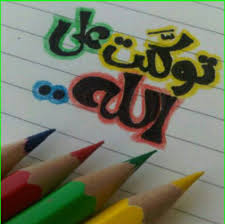 توكَّلت على
الله..